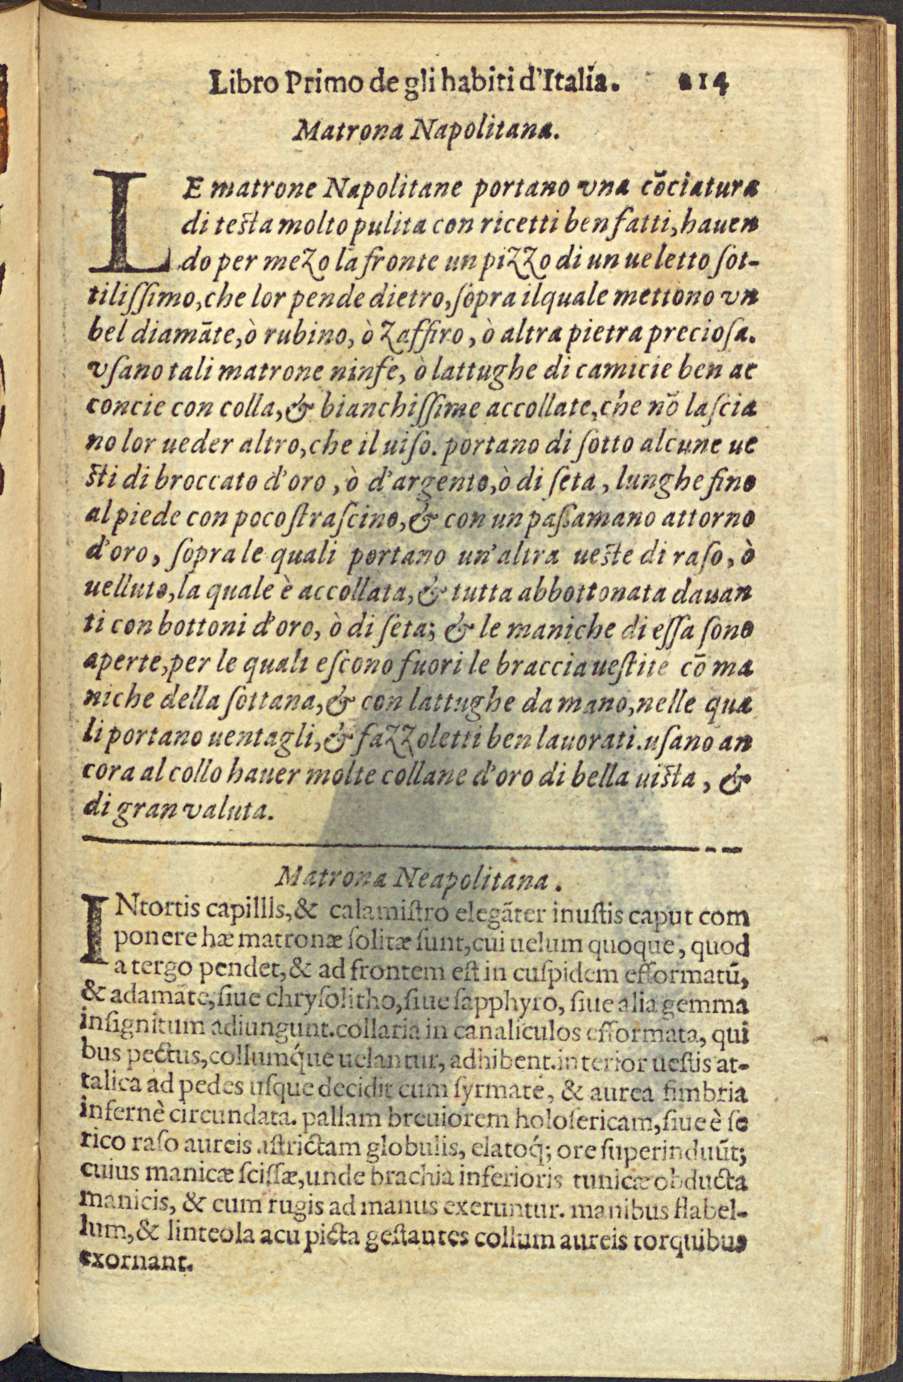 Libro Primo de gli habiti d'Italia. 214
Matrona Napolitana.
LE matrone Napolitane portano vna cōciatura
di testa molto pulita con ricetti ben fatti, hauen
do per mezo la fronte un pizzo di un ueletto sot-
tilissimo, che lor pende dietro, sopra il quale mettono vn
bel diamāte, ò rubino, ò zaffiro, ò altra pietra preciosa.
vsano tali matrone ninfe, ò lattughe di camicie ben ac
concie con colla, & bianchissime accollate, che nō lascia
no lor ueder altro, che il uiso. portano di sotto alcune ue
sti di broccato d'oro, ò d'argento, ò di seta, lunghe fino
al piede con poco strascino, & con un passamano attorno
d'oro, sopra le quali portano un'altra ueste di raso, ò
uelluto, la quale è accollata, & tutta abbottonata dauan
ti con bottoni d'oro, ò di seta; & le maniche di essa sono
aperte, per le quali escono fuori le braccia uestite cō ma
niche della sottana, & con lattughe da mano, nelle qua
li portano uentagli, & fazzoletti ben lauorati. usano an
cora al collo hauer molte collane d'oro di bella uista, &
di gran valuta.
Matrona Neapolitana.
INtortis capillis, & calamistro elegāter inustis caput com
ponere hæ matronæ solitæ sunt, cui uelum quoque, quod
a tergo pendet, & ad frontem est in cuspidem efformatū,
& adamāte, siue chrysolitho, siue sapphyro, siue alia gemma
insignitum adiungunt. collaria in canaliculos efformata, qui
bus pectus, collumq́ue uelantur, adhibent. interior uestis at-
talica ad pedes usque decidit cum syrmate, & aurea fimbria
infernè circundata. pallam breuiorem holosericam, siue è se
rico raso aureis astrictam globulis, elatoq́; ore superinduūt;
cuius manicæ scissæ, unde brachia inferioris tunicæ obducta
manicis, & cum rugis ad manus exeruntur. manibus flabel-
lum, & linteola acu picta gestantes collum aureis torquibus
exornant.